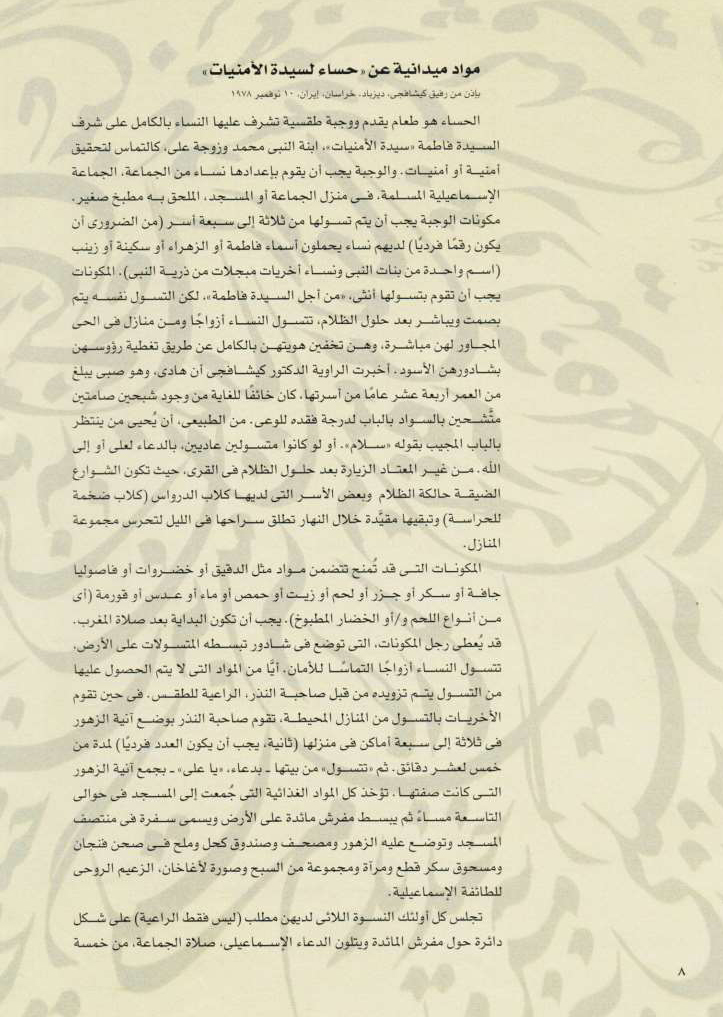 مواد ميدانية عن «حساء لسيدة الأمنيات»
بإذن من رفيق كيشافجى، ديزباد، خراسان، إيران، ١٠ نوفمبر ١٩٧٨
الحساء هو طعام يقدم ووجبة طقسية تشرف عليها النساء بالكامل على شرف
السيدة فاطمة «سيدة الأمنيات»، ابنة النبى محمد وزوجة على، كالتماس لتحقيق
أمنية أو أمنيات. والوجبة يجب أن يقوم بإعدادها نساء من الجماعة، الجماعة
الإسماعيلية المسلمة، فى منزل الجماعة أو المسجد، الملحق به مطبخ صغير.
مكونات الوجبة يجب أن يتم تسولها من ثلاثة إلى سبعة أسر (من الضرورى أن
يكون رقمًا فرديًا) لديهم نساء يحملون أسماء فاطمة أو الزهراء أو سكينة أو زينب
(اسم واحدة من بنات النبى ونساء أخريات مبجلات من ذرية النبى). المكونات
يجب أن تقوم بتسولها أنثى، «من أجل السيدة فاطمة»، لكن التسول نفسه يتم
بصمت ويباشر بعد حلول الظلام، تتسول النساء أزواجًا ومن منازل فى الحى
المجاور لهن مباشرة، وهن تخفين هويتهن بالكامل عن طريق تغطية رؤوسهن
بشادورهن الأسود. أخبرت الراوية الدكتور كيشافجى أن هادى، وهو صبى يبلغ
من العمر أربعة عشر عامًا من أسرتها، كان خائفًا للغاية من وجود شبحين صامتين
متَّشحين بالسواد بالباب لدرجة فقده للوعى. من الطبيعى، أن يُحيى من ينتظر
بالباب المجيب بقوله «سلام»، أو لو كانوا متسولين عاديين، بالدعاء لعلى أو إلى
الله. من غير المعتاد الزيارة بعد حلول الظلام فى القرى، حيث تكون الشوارع
الضيقة حالكة الظلام وبعض الأسر التى لديها كلاب الدرواس (كلاب ضخمة
للحراسة) وتبقيها مقيَّدة خلال النهار تطلق سراحها فى الليل لتحرس مجموعة
المنازل.
المكونات التى قد تُمنح تتضمن مواد مثل الدقيق أو خضروات أو فاصوليا
جافة أو سكر أو جزر أو لحم أو زيت أو حمص أو ماء أو عدس أو قورمة (أى
من أنواع اللحم و/أو الخضار المطبوخ). يجب أن تكون البداية بعد صلاة المغرب.
قد يُعطى رجل المكونات، التى توضع فى شادور تبسطه المتسولات على الأرض،
تتسول النساء أزواجًا التماسًا للأمان. أيًا من المواد التى لا يتم الحصول عليها
من التسول يتم تزويده من قبل صاحبة النذر، الراعية للطقس. فى حين تقوم
الأخريات بالتسول من المنازل المحيطة، تقوم صاحبة النذر بوضع آنية الزهور
فى ثلاثة إلى سبعة أماكن فى منزلها (ثانية، يجب أن يكون العدد فرديًا) لمدة من
خمس لعشر دقائق. ثم «تتسول» من بيتها ـ بدعاء، «يا على» ـ بجمع آنية الزهور
التى كانت صفتها. تؤخذ كل المواد الغذائية التى جُمعت إلى المسجد فى حوالى
التاسعة مساءً ثم يبسط مفرش مائدة على الأرض ويسمى سفرة فى منتصف
المسجد وتوضع عليه الزهور ومصحف وصندوق كحل وملح فى صحن فنجان
ومسحوق سكر قطع ومرآة ومجموعة من السبح وصورة لأغاخان، الزعيم الروحى
للطائفة الإسماعيلية.
تجلس كل أولئك النسوة اللائى لديهن مطلب (ليس فقط الراعية) على شكل
دائرة حول مفرش المائدة ويتلون الدعاء الإسماعيلى، صلاة الجماعة، من خمسة
٨